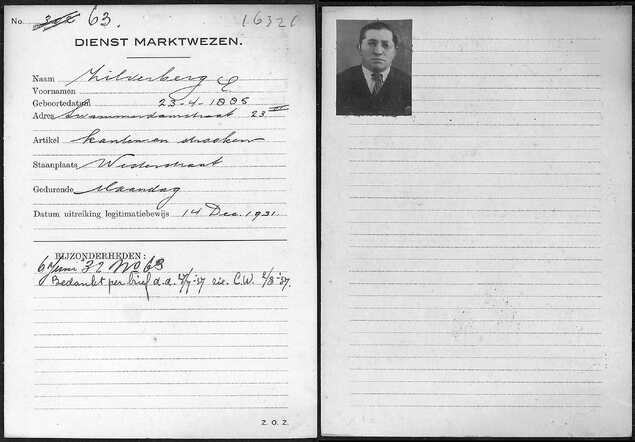 No. 63. 16320
DIENST MARKTWEZEN.
Naam Zilverberg E
Voornamen
Geboortedatum 23-4-1885
Adres Swammerdamstraat 23 III
Artikel kanten en strooken
Staanplaats Westerstraat
Gedurende Maandag
Datum uitreiking legitimatiebewijs 14 Dec. 1931
BIJZONDERHEDEN:
6 Juni '32 No 63
Bedankt per brief d.d. /7-'37 zie C.W. /8-'37.
Z. O. Z.